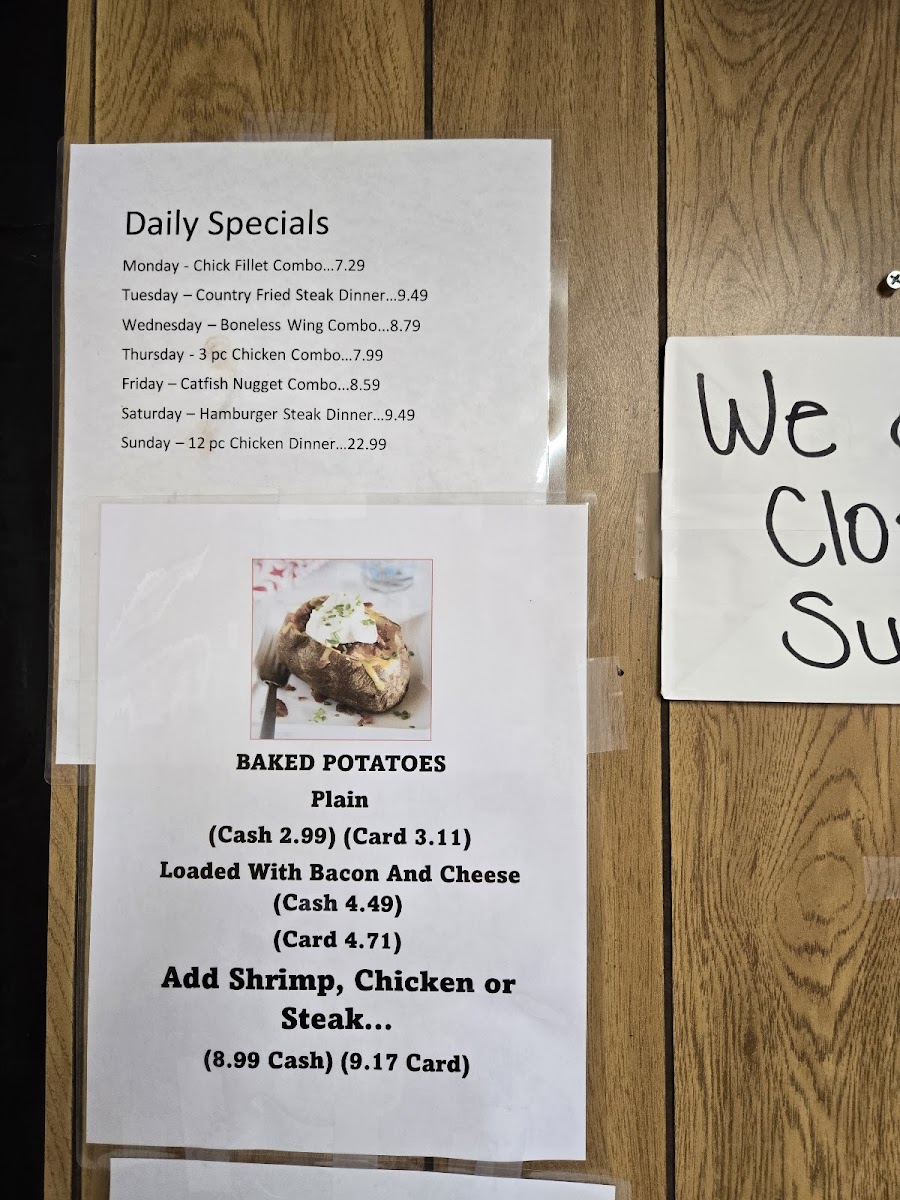 Daily Specials
Monday - Chick Fillet Combo...7.29
Tuesday – Country Fried Steak Dinner...9.49
Wednesday – Boneless Wing Combo...8.79
Thursday - 3 pc Chicken Combo...7.99
Friday – Catfish Nugget Combo...8.59
Saturday – Hamburger Steak Dinner...9.49
Sunday – 12 pc Chicken Dinner...22.99
BAKED POTATOES
Plain
(Cash 2.99) (Card 3.11)
Loaded With Bacon And Cheese
(Cash 4.49)
(Card 4.71)
Add Shrimp, Chicken or
Steak...
(8.99 Cash) (9.17 Card)
We